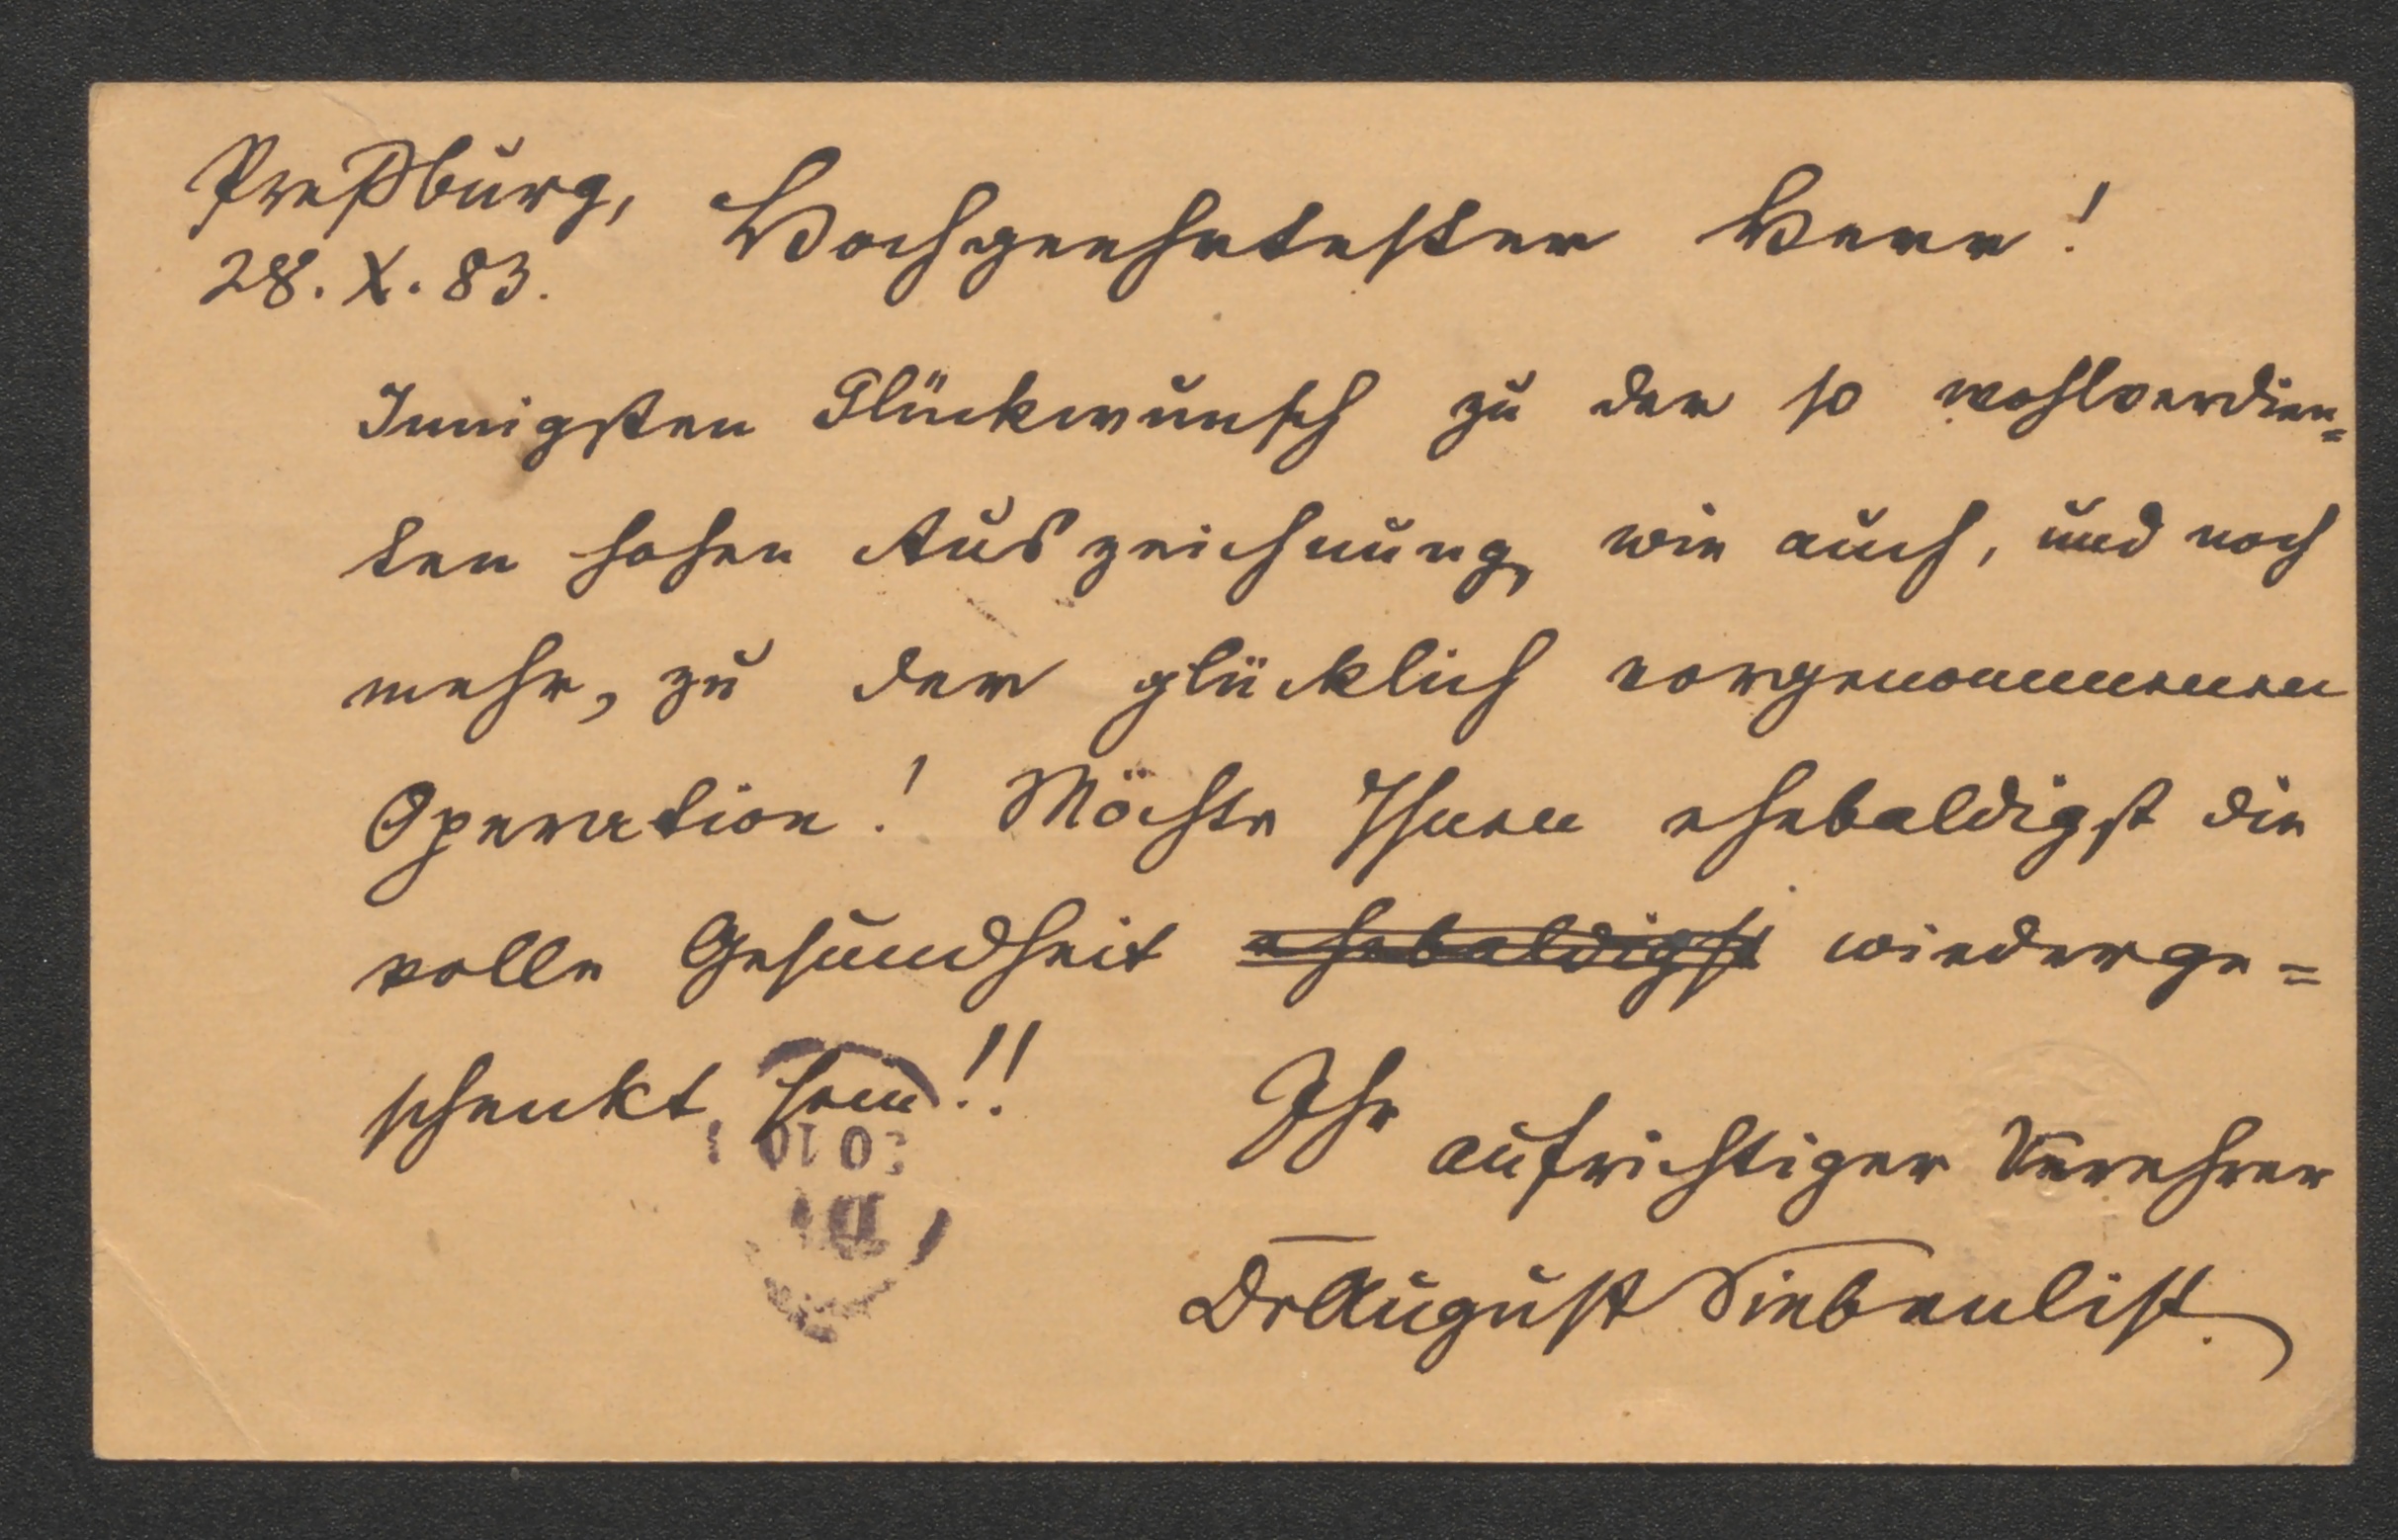 Preßburg,
28. X. 83.
Hochgeehrtester Herr!
Innigsten Glückwunsch zu der so wohlverdien=
ten hohen Auszeichnung, wie auch, und noch
mehr, zu der glücklich vorgenommenen
Operation! Möchte Ihnen ehebaldigst die
volle Gesundheit ehebaldigst wiederge=
schenkt sein!!
Ihr
aufrichtiger Verehrer
Dr August Siebenlist.